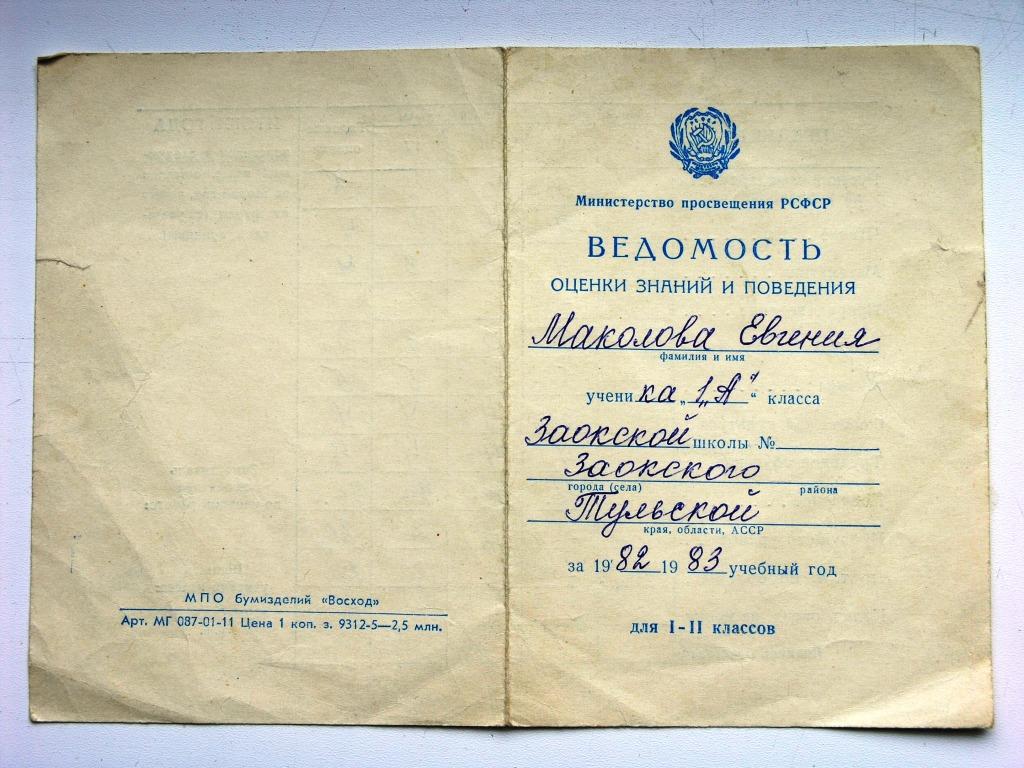 МПО бумизделий «Восход»
Арт. МГ 087-01-11 Цена 1 коп. з. 9312-5—2,5 млн.
Министерство просвещения РСФСР
ВЕДОМОСТЬ
ОЦЕНКИ ЗНАНИЙ И ПОВЕДЕНИЯ
Маколова Евгения
фамилия и имя
ученика „1„А" “ класса
Заокской школы №
Заокского
города (села) района
Тульской
края, области, АССР
за 1982 1983 учебный год
для I-II классов